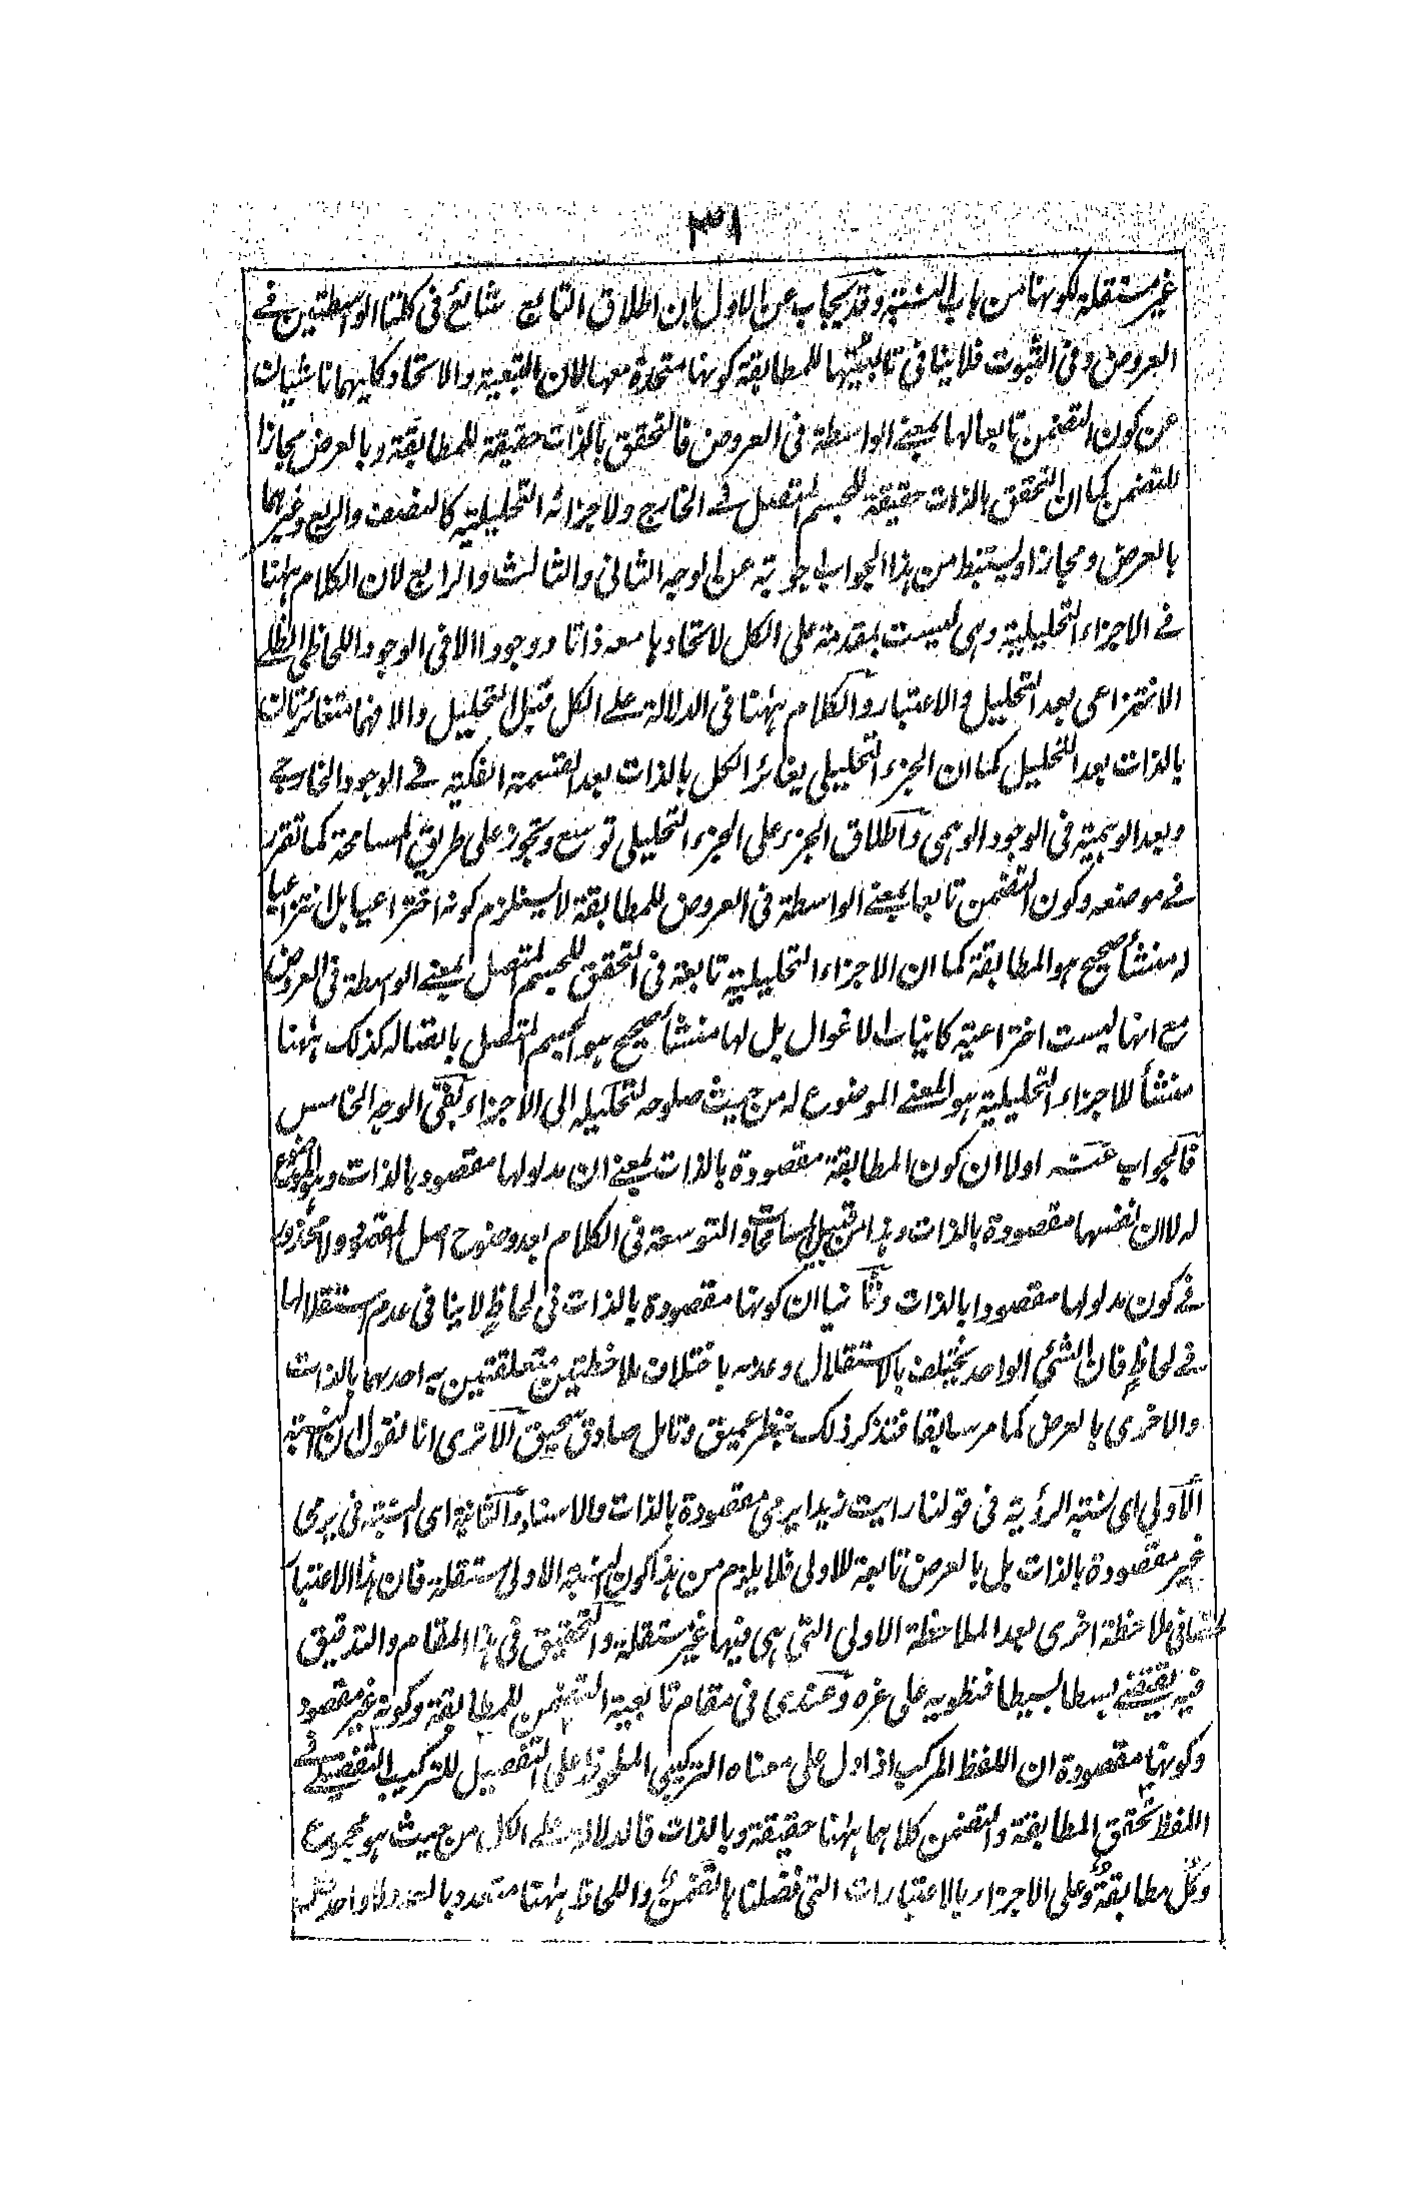 ٣١
غير مستقلة لكونها من باب النسبة وقد يجاب عن الاول بان اطلاق التابع شائع فى كلتا الواسطتين في
العروض وفى الثبوت فلا ينافى تابعيتها للمطابقة كونها متحدة معها لان التبعية والاتحاد كليهما ناشيان
عن كون التضمن تابعا لها بمعنے الواسطة فى العروض فالتحقق بالذات حقيقة للمطابقة وبالعرض مجازا
للتضمن كما ان التحقق بالذات حقيقة للجسم المتصل في الخارج ولاجزائه التحليلية كالنصف والربع وغيرهما
بالعرض ومجازا ويستنبط من هذا الجواب اجوبة عن الوجه الثانى والثالث والرابع لان الكلام ههنا
في الاجزاء التحليلية وهى ليست بمقدمة على الكل لاتحادها معه ذاتا ووجودا الا فى الوجود اللحاظى الظلے
الانتزاعى بعد التحليل والاعتبار والكلام ههنا فى الدلالة علے الكل قبل التحليل والا فهما متغائرتان
بالذات بعد التحليل كما ان الجزء التحليلى يغائر الكل بالذات بعد القسمة الفكية في الوجود الخارجے
وبعد الوهمية فى الوجود الوهمى واطلاق الجزء على الجزء التحليلى توسع وتجوز على طريق المسامحة كما تقرر
في موضعه وكون التضمن تابعا بمعنے الواسطة فى العروض للمطابقة لا يستلزم كونه اختراعيا بل انتزاعيا
له منشأ صحيح هو المطابقة كما ان الاجزاء التحليلية تابعة فى التحقق للجسم المتصل بمعنے الواسطة فى العروض
مع انها ليست اختراعية كانياب الاغوال بل لها منشأ صحيح هو الجسم المتصل باتصاله كذلك ههنا
منشأ للاجزاء التحليلية هو المعنے الموضوع له من حيث صلوحه لتحليله الى الاجزاء بقى الوجه الخامس
فالجواب عنه اولا ان كون المطابقة مقصودة بالذات بمعنے ان مدلولها مقصود بالذات وهو الموضوع
له لا ان نفسها مقصودة بالذات وهذا من قبيل المسامحة والتوسعة فى الكلام بعد وضوح اصل المقصود ولا محذور
في كون مدلولها مقصودا بالذات وثانيا ان كونها مقصودة بالذات فى لحاظٍ لا ينافى عدم استقلالها
في لحاظٍ فان الشئ الواحد يختلف بالاستقلال وعدمه باختلاف ملاحظتين متعلقتين به احدهما بالذات
والاخرى بالعرض كما مر سابقا فتذكر ذلك بنظر عميق وتامل صادق سحيق الا ترى انا نقول ان النسبة
الاولى اى نسبة الرؤية فى قولنا رايت زيدا يرمى مقصودة بالذات والاسناد والثانية اى النسبة فى يرمى
غير مقصودة بالذات بل بالعرض تابعة للاولى فلا يلزم من هذا كون النسبة الاولى مستقلة فان هذا الاعتبار
ملاحظة اخرى بعد الملاحظة الاولى التى هى فيها غير مستقلة والتحقيق فى هذا المقام والتدقيق
فيه يقتضے بسطا بسيطا فنطويه على غره وعندى فى مقام تابعية التضمن للمطابقة وكونه غير مقصود
وكونها مقصودة ان اللفظ المركب اذا دل على معناه التركيبى الملحوظ على التفصيل للتركيب التفصيلے في
اللفظ تحقق المطابقة والتضمن كلاهما ههنا حقيقة وبالذات فالدلالة علے الكل من حيث هو مجموع
وكل مطابقةٌ وعلى الاجزاء بالاعتبارات التى فصلناها تضمنٌ واللحاظ ههنا متعدد بالعدد لا واحد